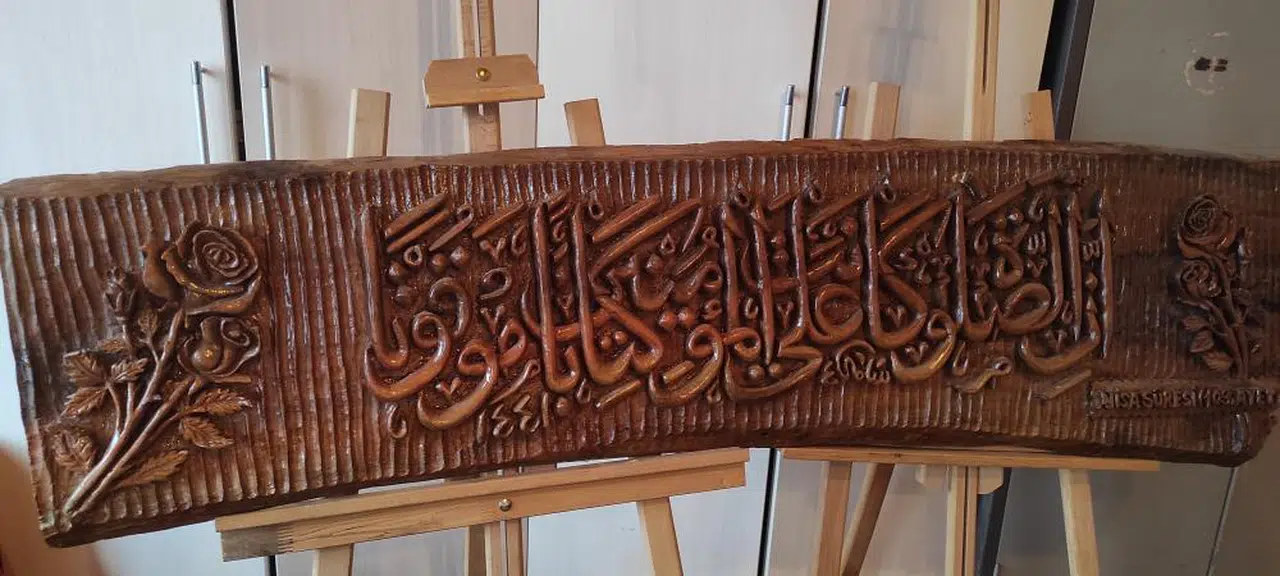 ان الصلوة كانت على المؤمنين كتابا موقوتا
١٤٤١
NISA SURESI 103.AYET